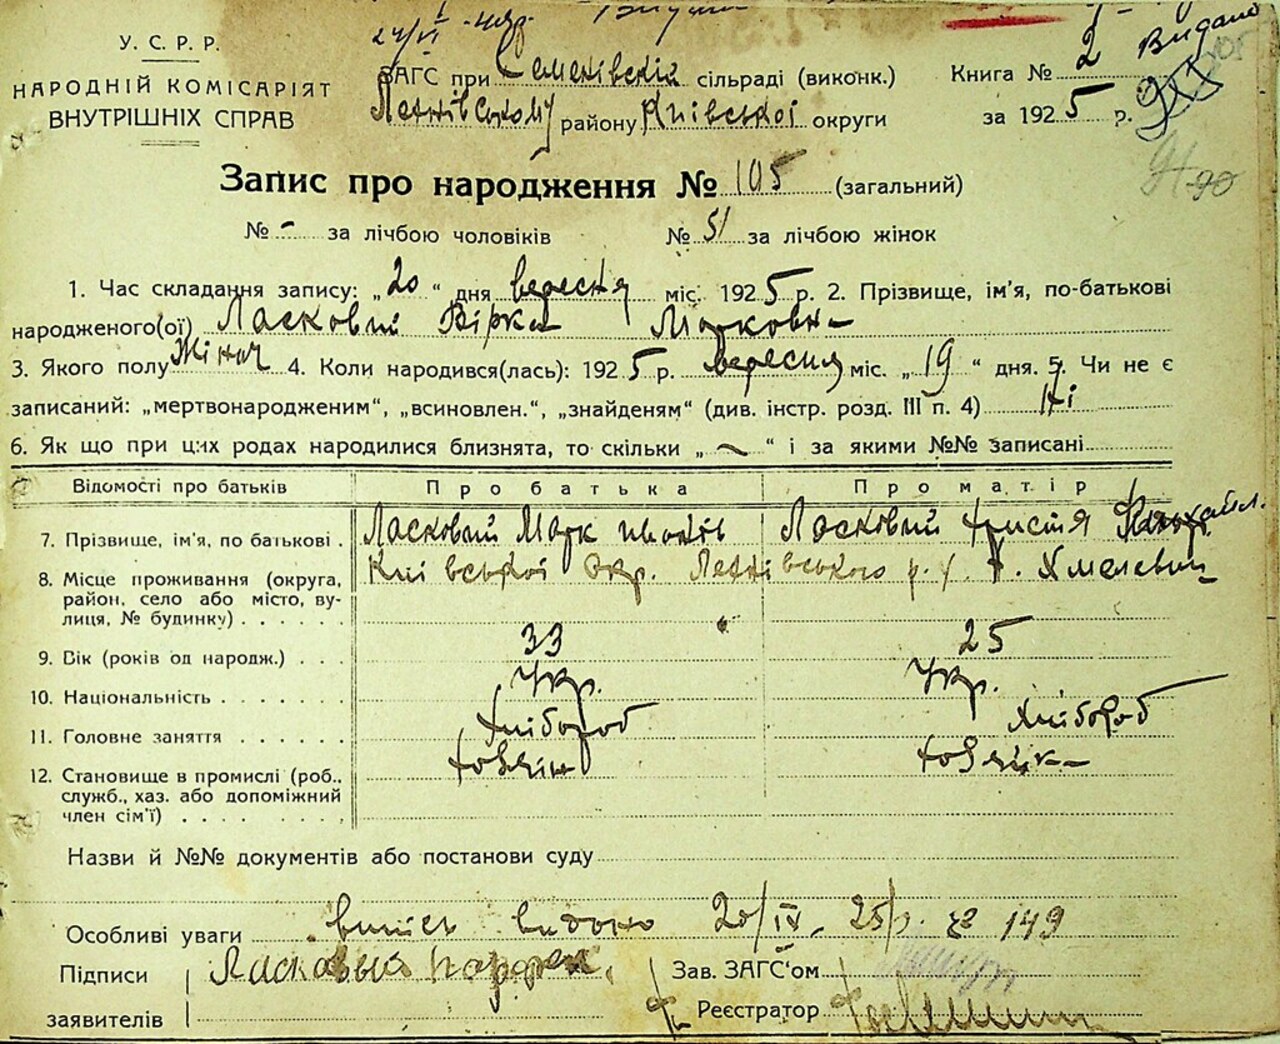 У. С. Р. Р.
НАРОДНІЙ КОМІСАРІЯТ
ВНУТРІШНІХ СПРАВ
Видано
ЗАГС при Семенівскій сільраді (виконк.)
району Київської округи
Книга № 2
за 1925 р.
Запис про народження № 105 (загальний)
№ - за лічбою чоловіків № 51 за лічбою жінок
1. Час складання запису: „20“ дня вересня міс. 1925 р. 2. Прізвище, ім'я, по-батькові
народженого(ої) Ласковий Вірка Марковна
3. Якого полу Жіноч 4. Коли народився(лась): 1925 р. вересня міс. „19“ дня. 5. Чи не є
записаний: „мертвонародженим“, „всиновлен.“, „знайденям“ (див. інстр. розд. III п. 4) Ні
6. Як що при цих родах народилися близнята, то скільки „~“ і за якими №№ записані
Відомості про батьків Про батька Про матір
7. Прізвище, ім'я, по батькові. Ласковий Марк Ласковий Христя Михайл.
8. Місце проживання (округа, район, село або місто, вулиця, № будинку) Київської Окр. р.
9. Вік (років од народж.) 33 25
10. Національність Укр. Укр.
11. Головне заняття Хлібороб Хлібороб
12. Становище в промислі (роб., служб., хаз. або допоміжний член сім'ї) Хозяїн Хозяйка
Назви й №№ документів або постанови суду
Особливі уваги випись видано 20/IX 25 р. за 149
Підписи заявителів
Зав. ЗАГС'ом
Реєстратор